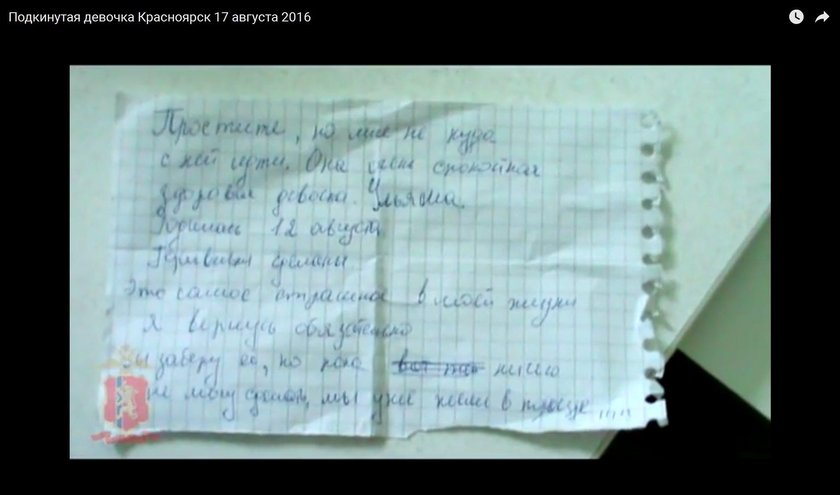 Подкинутая девочка Красноярск 17 августа 2016
Простите, но мне не куда
с ней идти. Она очень спокойная
здоровая девочка. Ульяна.
Родилась 12 августа
Прививки сделаны.
Это самое страшное в моей жизни
Я вернусь обязательно
и заберу её, но пока вот так ничего
не могу сделать, мы уже жили в